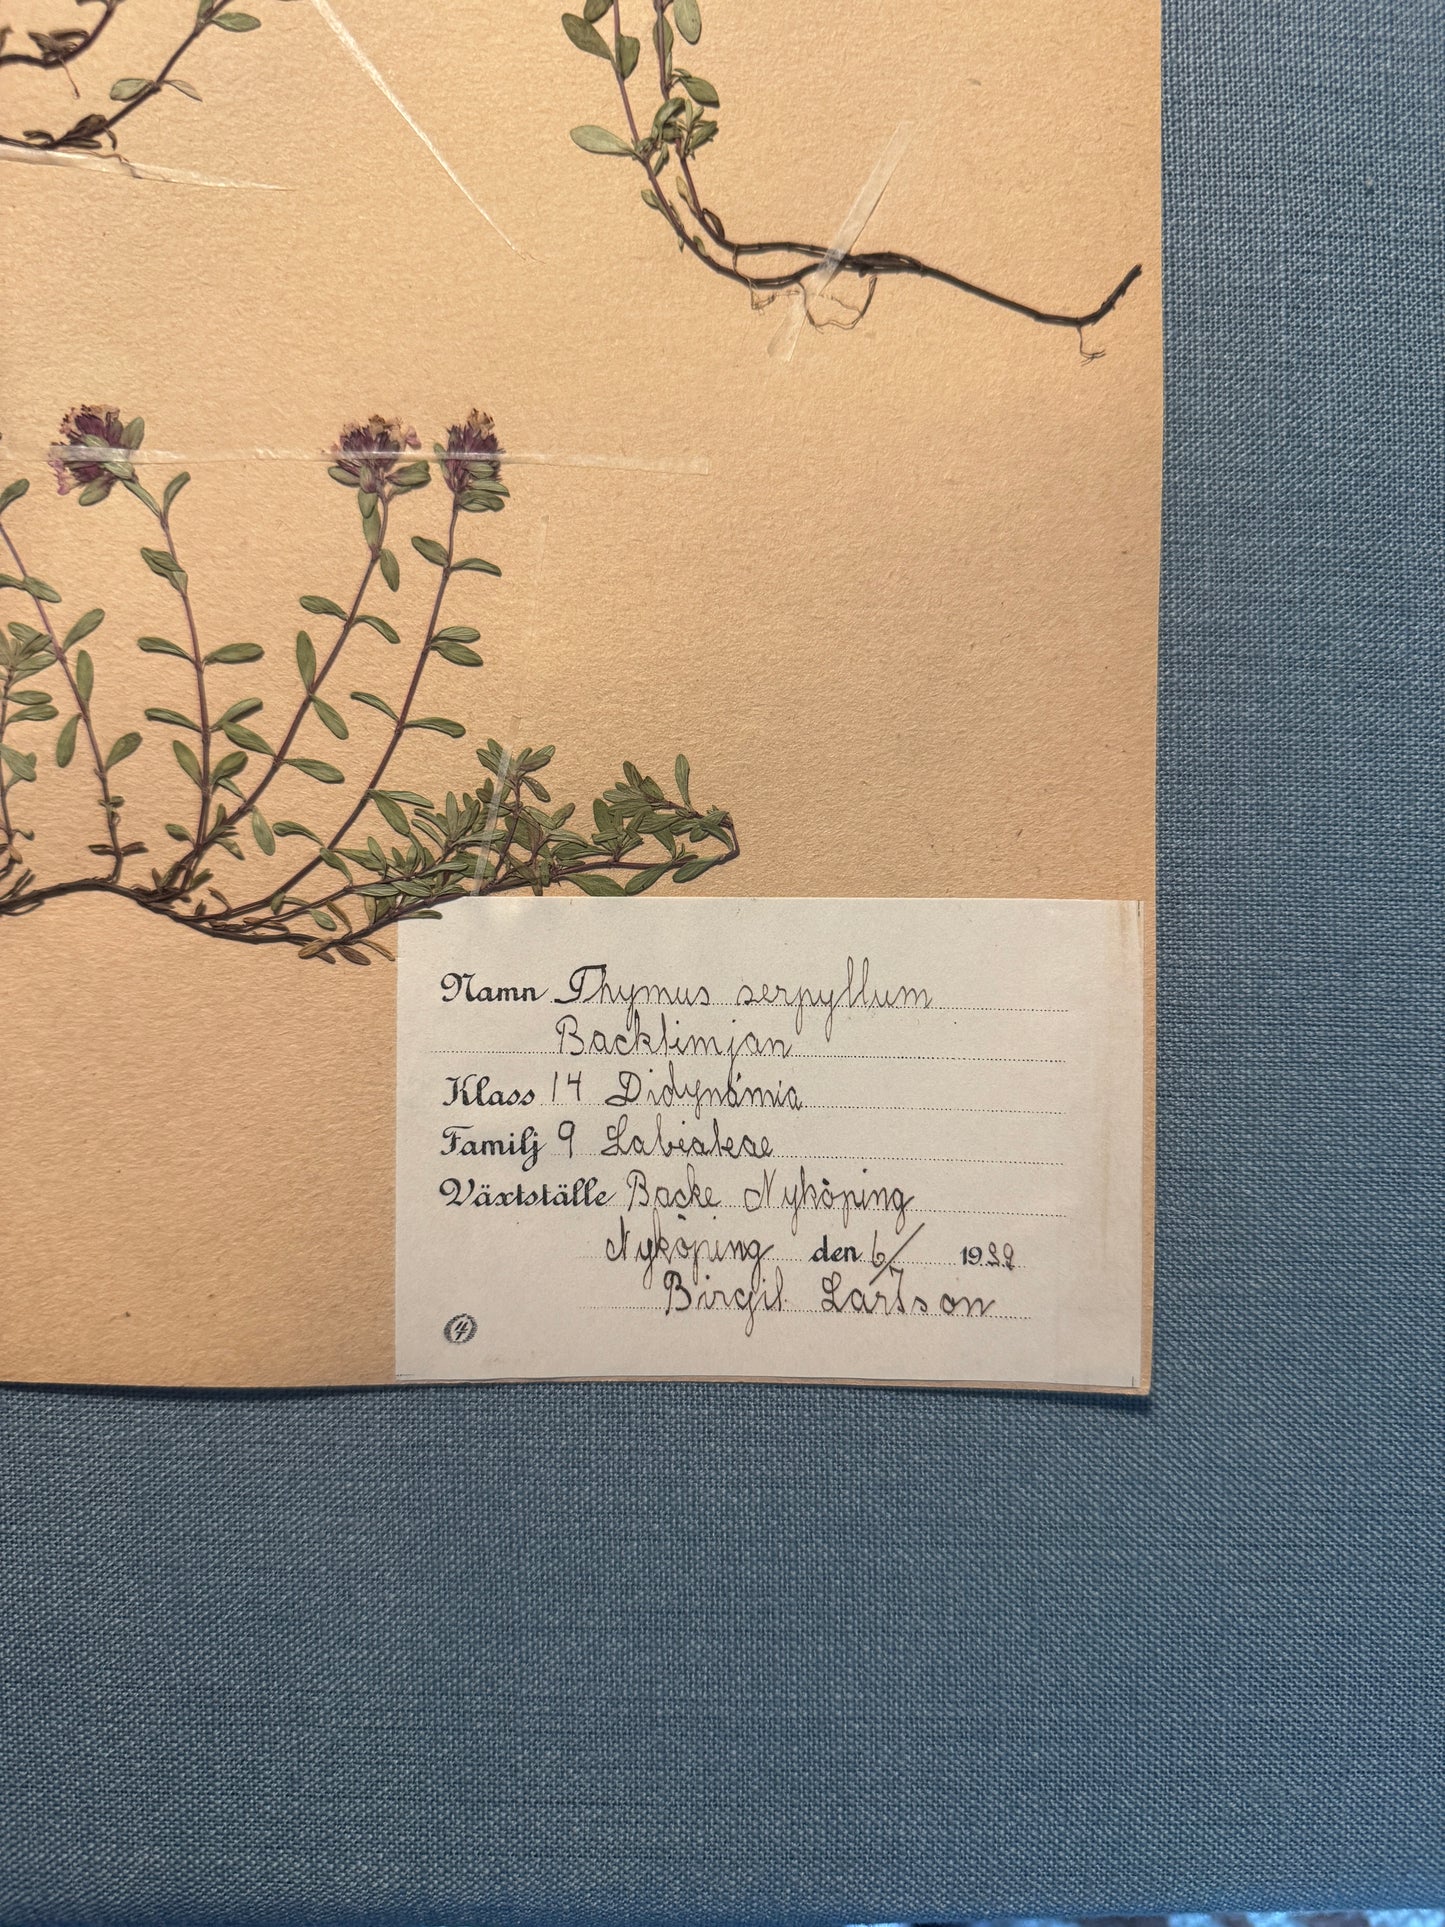 Namn Thymus serpyllum
Backtimjan
Klass 14 Didynámia
Familj 9 Labiatae
Växtställe Backe Nyköping
Nyköping den 6/7 1939
Birgit Larsson
4